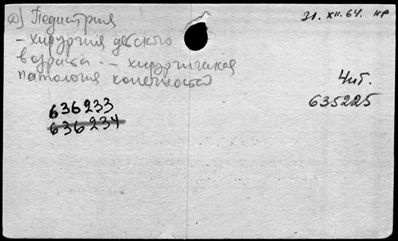 д) Педиатрия
21.XII.64. НР
- хирургия детского
возраста -- хирургическая
патология конечностей
Чит.
635225
636233
636234